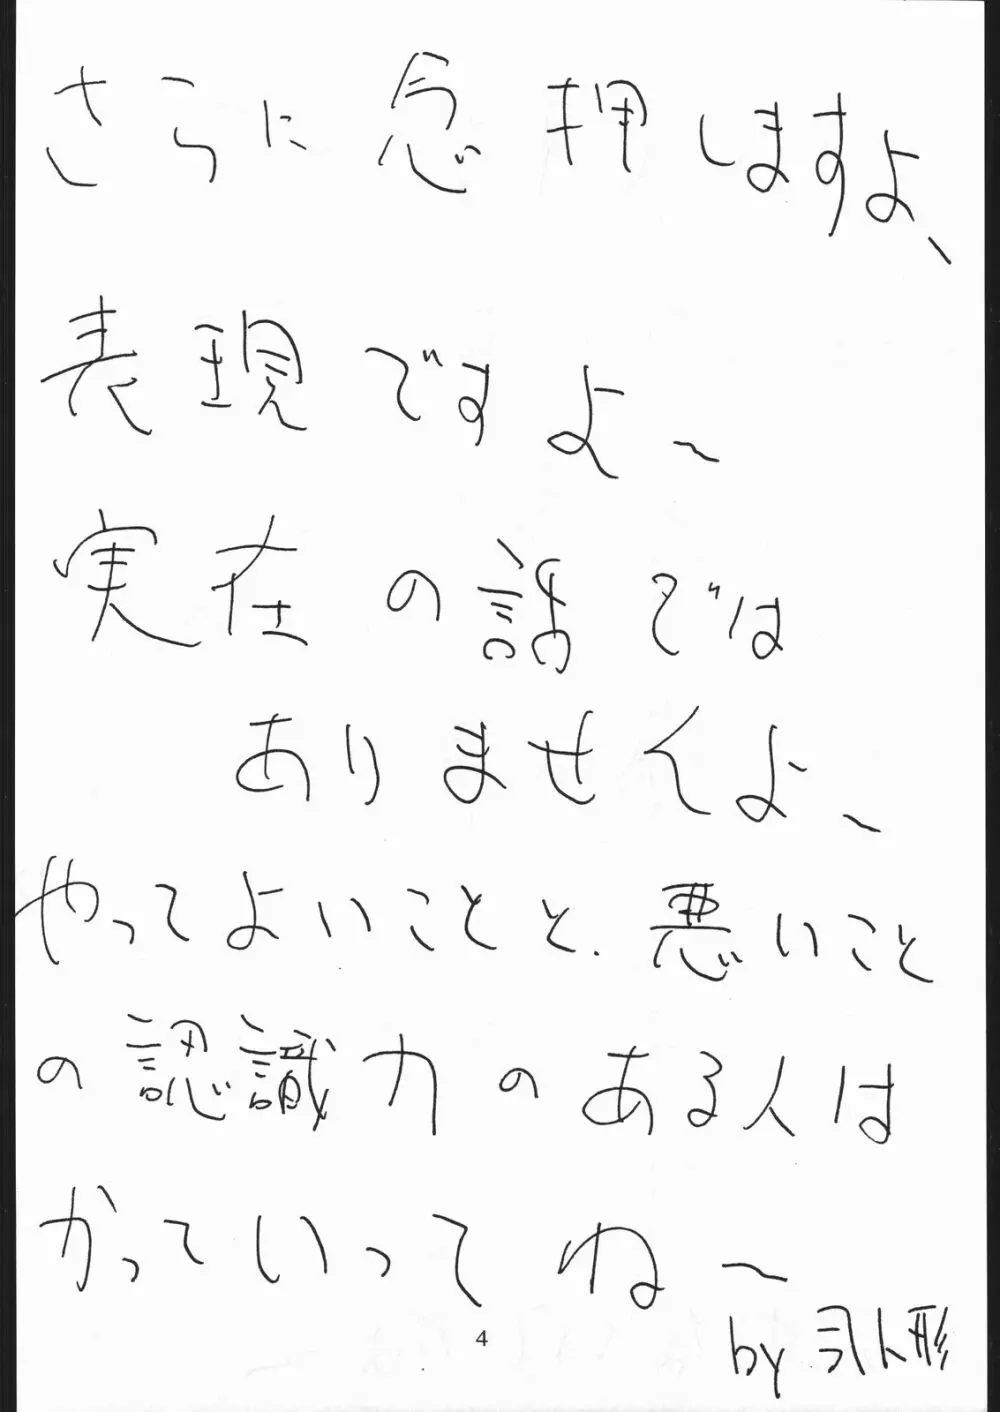 さらに念押しますよ、
表現ですよ~
実在の話では
ありませんよ、
やってよいことと、悪いこと
の認識力のある人は
かっていってね~
by 弓人形
4